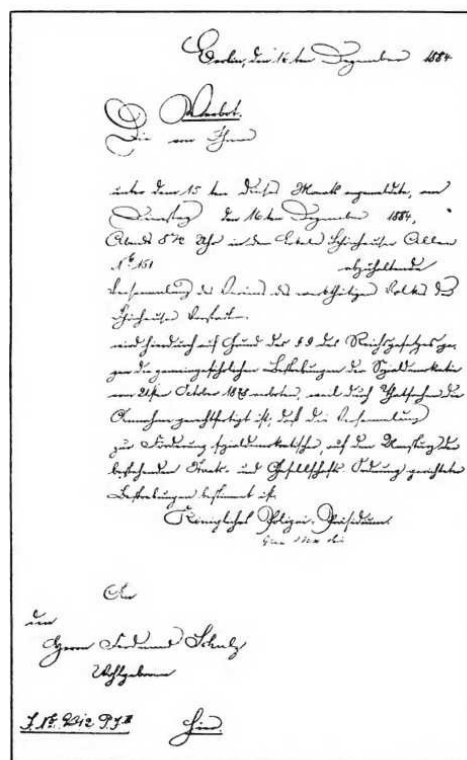 Berlin, den 16ten Dezember 1884
Verbot.
Die von Ihnen
unter dem 15ten dieses Monats angemeldete, am
Dienstag den 16ten Dezember 1884,
Abends 8½ Uhr in dem Lokale Schönhauser Allee
No 161 abzuhaltende
Versammlung des Vereins des werkthätigen Volkes der
Schönhauser Vorstadt
wird hierdurch auf Grund des § 9 des Reichsgesetzes ge-
gen die gemeingefährlichen Bestrebungen der Sozialdemokratie
vom 21ten October 1878 verboten, weil durch Thatsachen die
Annahme gerechtfertigt ist, daß die Versammlung
zur Förderung sozialdemokratischer, auf den Umsturz der
bestehenden Staats- und Gesellschafts-Ordnung gerichteter
Bestrebungen bestimmt ist.
Königliches Polizei-Präsidium.
An
den
Herrn Ferdinand Schulz
Wohlgeboren
Hier.